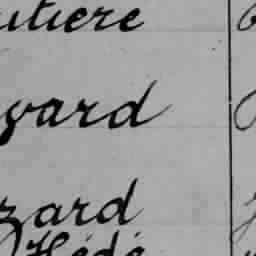 utiere
yard
zard
Hédé